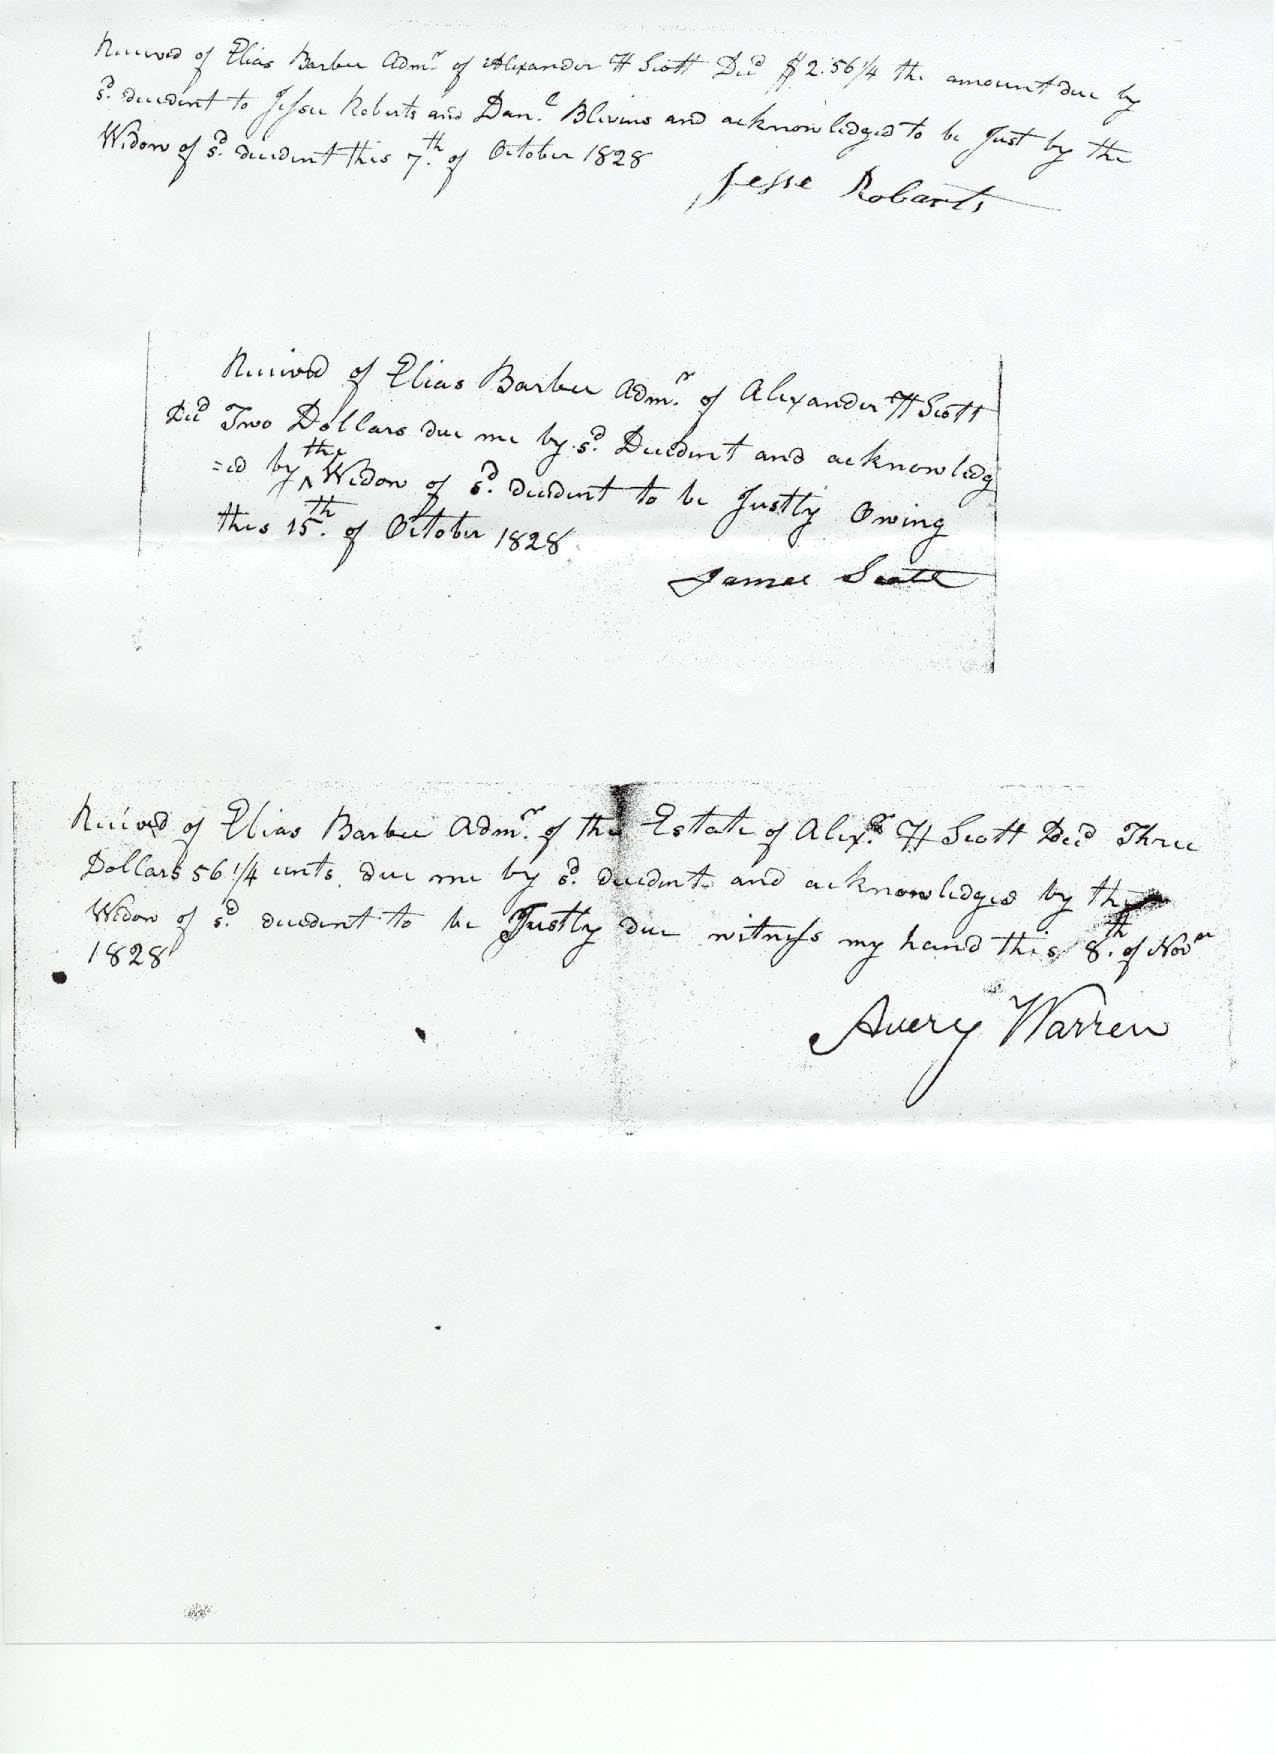 Received of Elias Barbee Admr. of Alexander H Scott Decd $2.56 1/4 the amount due by
sd. decedent to Jesse Roberts and Danl. Blivins and acknowledged to be Just by the
Widow of sd. decedent this 7th. of October 1828
Jesse Robarts
Received of Elias Barbee Admr. of Alexander H Scott
Decd Two Dollars due me by sd. Decedent and acknowledg
=ed by ^the Widow of sd. decedent to be Justly Owing
this 15th. of October 1828
James Scott
Received of Elias Barbee Admr. of the Estate of Alexr. H Scott Decd Three
Dollars 56 1/4 cents due me by sd. decedent and acknowledged by the
Widow of sd. decedent to be Justly due witness my hand this 8th. of Novr
1828
Avery Warren